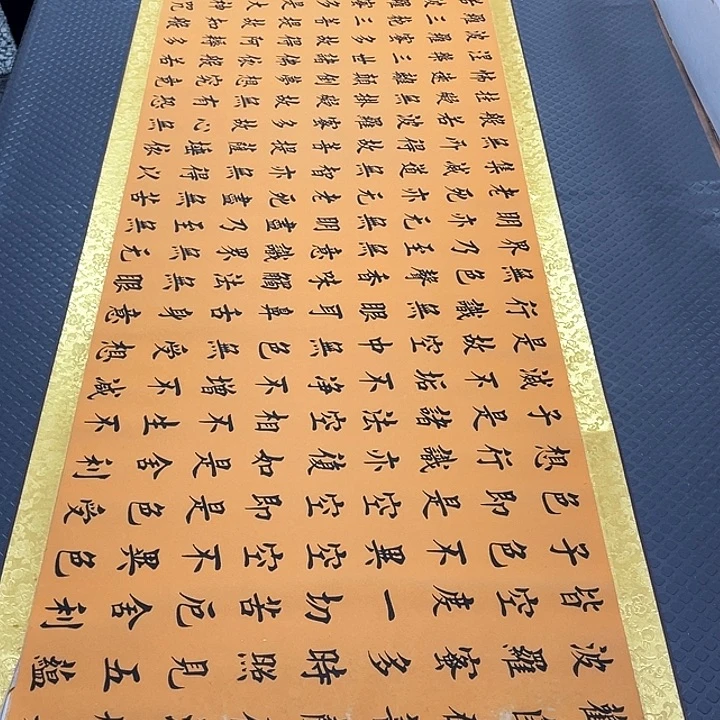 波羅蜜多時照見五蘊
皆空度一切苦厄舍利
子色不異空空不異色
色即是空空即是色受
想行識亦復如是舍利
子是諸法空相不生不
滅不垢不净不增不減
是故空中無色無受想
行識無眼耳鼻舌身意
無色聲香味觸法無眼
界乃至無意識界無无
明亦无無明盡乃至無
老死亦无老死盡無苦
集滅道無智亦無得以
無所得故菩提薩埵依
般若波羅蜜多故心無
挂礙無掛礙故無有恐
怖遠離顛倒夢想究竟
涅槃三世諸佛依般若
波羅蜜多故得阿耨多
羅三藐三菩提故知般